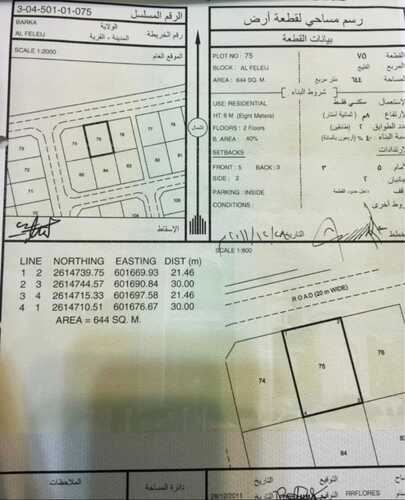 3-04-501-01-075 الرقم المسلسل
BARKA الولاية
رقم الخريطة
AL FELEIJ المدينة - القرية
SCALE 1:2000 الموقع العام
75
76
74
الشمال
الإسقاط
رسم مساحي لقطعة أرض
بيانات القطعة
PLOT NO : 75 ٧٥ القطعة
BLOCK : AL FELEIJ الفليج المربع
AREA : 644 SQ. M. ٦٤٤ متر مربع المساحة
شروط البناء
USE: RESIDENTIAL سكني فقط الإستعمال
HT: 8 M (Eight Meters) ٨م (ثمانية أمتار)
FLOORS : 2 Floors ٢ (طابقين) عدد الطوابق
B. AREA : 40% ٤٠% (أربعون بالمائة)
SETBACKS
FRONT : 5 BACK : 3 ٣ ٥
SIDE : 2 ٢
PARKING : INSIDE داخل حدود القطعة
CONDITIONS شروط أخرى
التاريخ
LINE NORTHING EASTING DIST (M)
1 2 2614739.75 601669.93 21.46
2 3 2614744.57 601690.84 30.00
3 4 2614715.33 601697.58 21.46
4 1 2614710.51 601676.67 30.00
AREA = 644 SQ. M.
SCALE 1:600
ROAD (20 m WIDE)
74
75
76
84
83
الملاحظات
دائرة المساحة
التاريخ
التوقيع
28/12/2011
RRFLORES